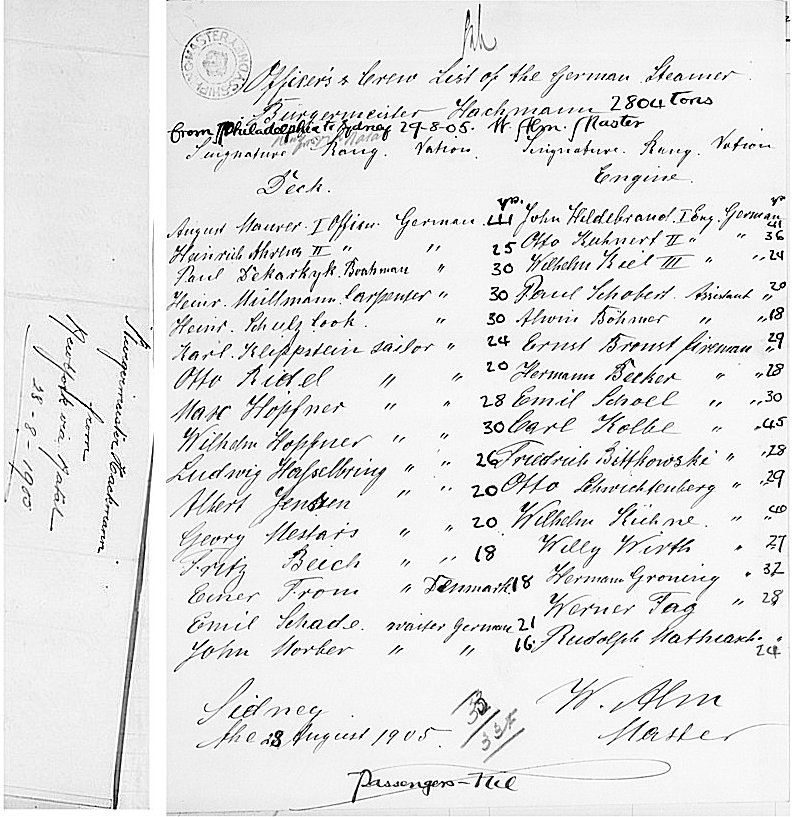 Burgermeister Hachmann
from
Newyork via Natal
28-8-1905
SHIPPING MASTER
Officer's & Crew List of the German Steamer
Burgermeister Hachmann 2804 tons
from Philadelphia to Sydney 29-8-05. W. Alm. Master
Singnature Rang. Nation. Singnature. Rang. Nation
Deck. Engine.
yrs. yrs
August Maurer. I Officer. German. 41 John Hildebrand. I Eng. German 41
Heinrich Ahrens II " " 25 Otto Kuhnert II " " 36
Paul Dekarkyk. Boatsman " 30 Wilhelm Kiel III " " 24
Heinr. Mullmann. Carpenter " 30 Paul Schobert. Assistant " 20
Heinr. Schulz Cook. " 30 Alwin Böhmer " " 18
Karl. Klippstein sailor " 24 Ernst Bronst fireman " 29
Otto Ridel " " 20 Hermann Becker " " 28
Max Höpfner " " 28 Emil Scholl " " 30
Wilhelm Hopfner " " 30 Carl Kolbe " " 45
Ludwig Hasselbring " " 26 Friedrich Bittkowski " " 28
Albert Jensen " " 20 Otto Schwichtenberg " " 29
Georg Mestars " " 20 Wilhelm Kühne. " " 40
Fritz Beich " " 18 Willy Wirth " 27
Einer From " Denmark 18 Hermann Groning " 32
Emil Schade. waiter German 21 Werner Tag " " 28
John Morber " " 16. Rudolph Mathiasch. " 24
Sidney
the 28 August 1905.
33
33
W. Alm
Master
Passengers - Nil